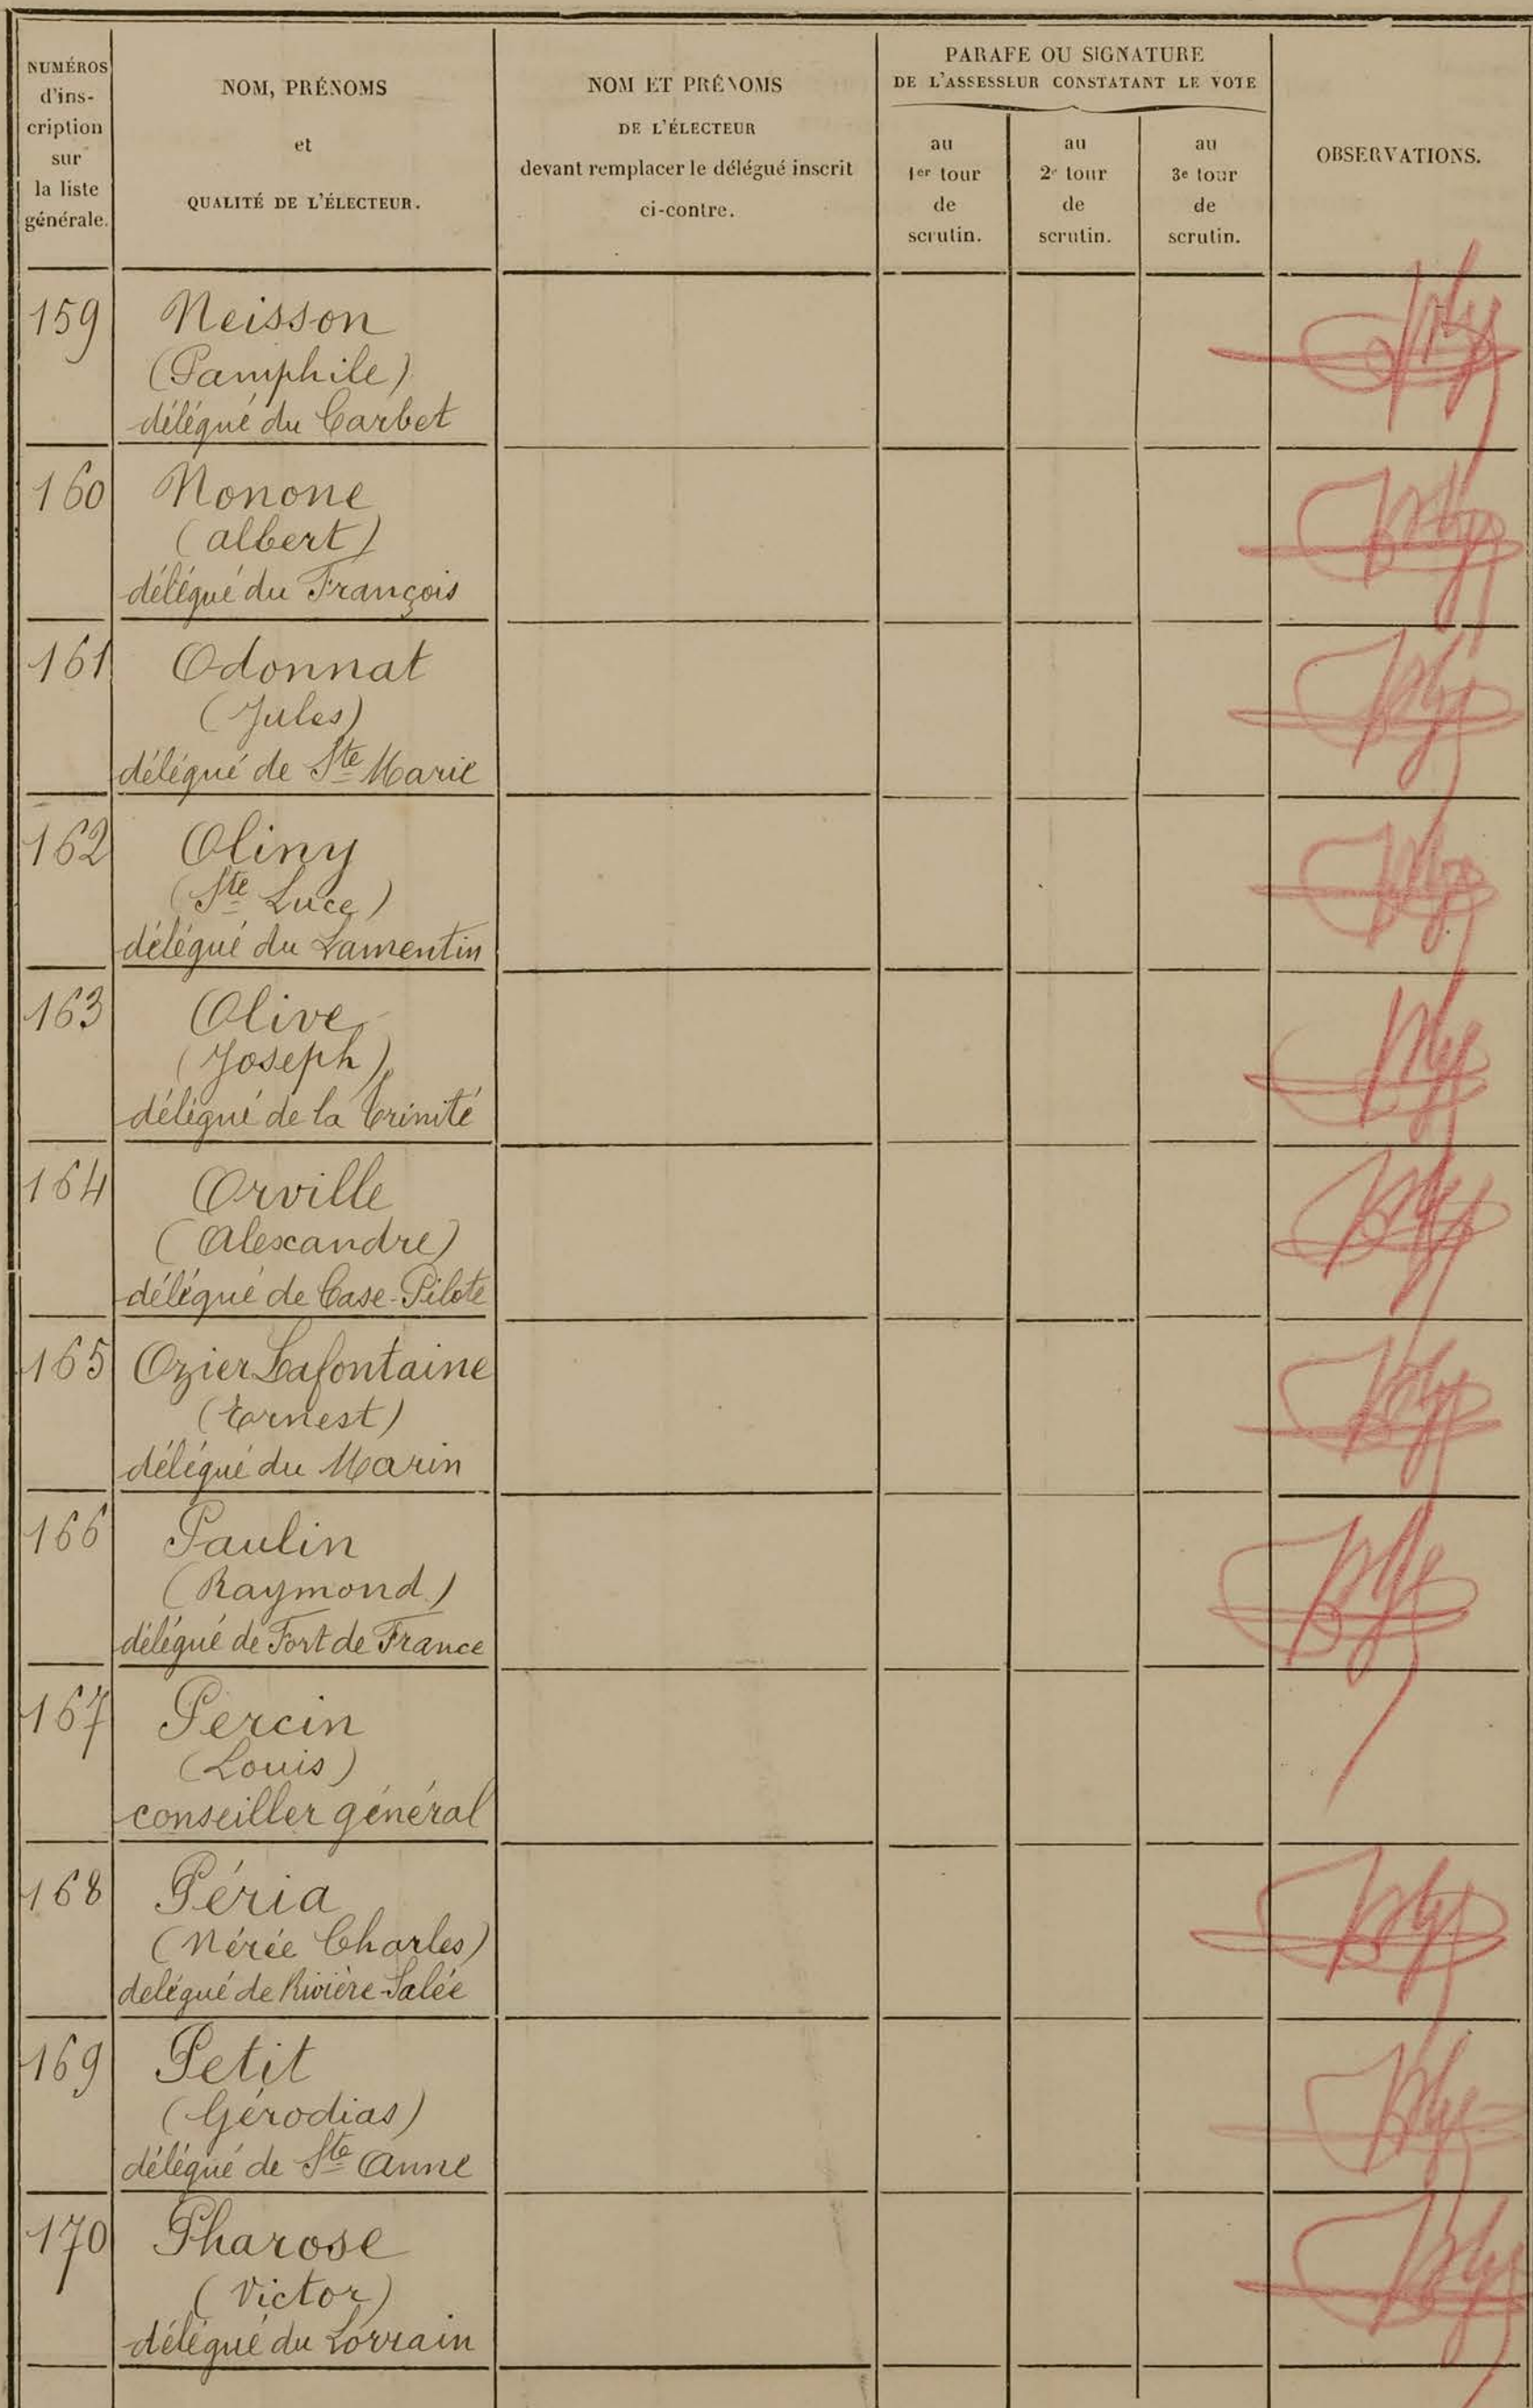 NUMÉROS
d'ins-
cription
sur
la liste
générale.
NOM, PRÉNOMS
et
QUALITÉ DE L'ÉLECTEUR.
NOM ET PRÉNOMS
DE L'ÉLECTEUR
devant remplacer le délégué inscrit
ci-contre.
PARAFE OU SIGNATURE
DE L'ASSESSEUR CONSTATANT LE VOTE
au
1er tour
de
scrutin.
au
2e tour
de
scrutin.
au
3e tour
de
scrutin.
OBSERVATIONS.
159 Neisson
(Pamphile)
délégué du Carbet
160 Nonone
(albert)
délégué du François
161 Odonnat
(Jules)
délégué de Ste Marie
162 Oliny
(Ste Luce)
délégué du Lamentin
163 Olive
(Joseph)
délégué de la Trinité
164 Orville
(Alexandre)
délégué de Case-Pilote
165 Ozier Lafontaine
(Ernest)
délégué du Marin
166 Paulin
(Raymond)
délégué de Fort de France
167 Percin
(Louis)
conseiller général
168 Péria
(Nérée Charles)
delégué de Rivière-Salée
169 Petit
(Gérodias)
délégué de Ste Anne
170 Pharose
(Victor)
délégué du Lorrain